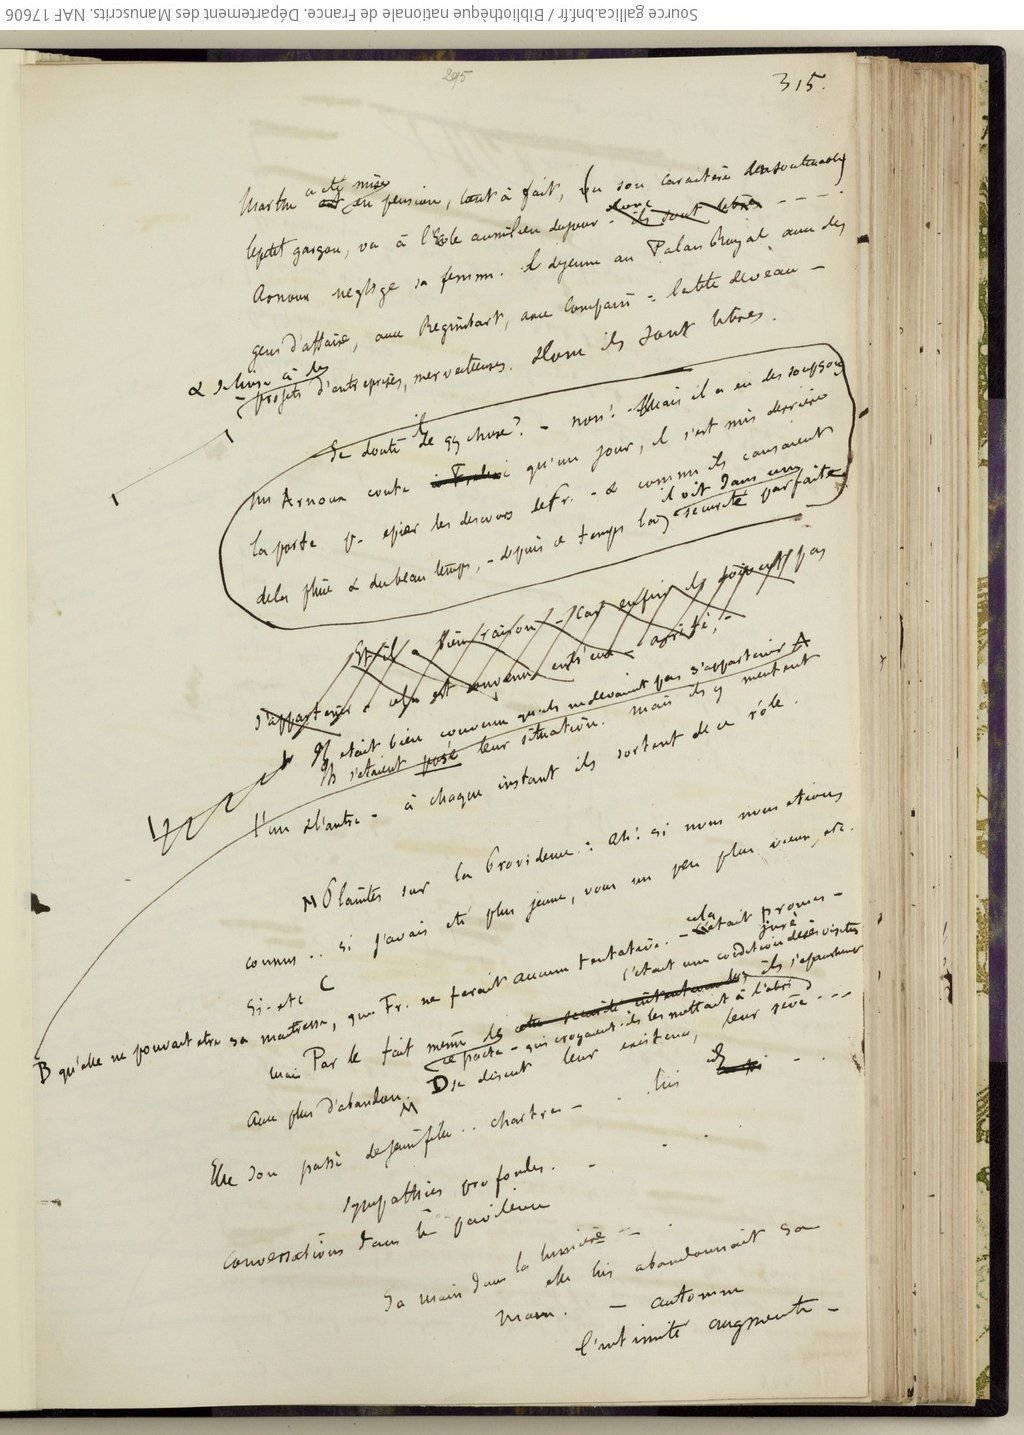 Source gallica.bnf.fr / Bibliothèque nationale de France. Département des Manuscrits. NAF 17606
295
315.
a été mise
Marthe est en pension, tout à fait, (vu son caractère
le petit garçon, va à l'Ecole au milieu du jour - donc ils sont libres - - - -
Arnoux neglige sa femme. il dejeune au Palais Royal avec des
gens d'affaire, avec Regimbart, avec Compain = la tête de veau -
& se livre à des
projets d'entreprises, merveilleuses. Donc ils sont libres.
Se doute-il de qq chose? - non! - Mais il a eu des soupçons
Me Arnoux conte à Frederic qu'un jour, il s'est mis derrière
la porte p. epier les discours de Fr. - & comme ils causaient
de la pluie & du beau temps, - depuis ce temps là, il vit dans une securité parfaite
Et il a bien raison - car enfin ils ne pas
s'appartenir - cela est convenu entr'eux - arrêté, -
Il etait bien convenu qu'ils ne devaient pas s'appartenir A
Ils s'etaient posé leur situation. mais ils y mentent
l'un & l'autre - à chaque instant ils sortent de ce rôle.
M Plaintes sur la Providence : ah! si nous nous etions
connus .. si j'avais été plus jeune, vous un peu plus vieux, etc.
si - etc C
B qu'elle ne pouvait etre sa maitresse, que Fr. ne ferait aucune tentative. - cela était promis -
juré
c'etait une condition de ses visites
mais Par le fait même de ce pacte - qui croyaient-ils les mettait à l'abri ils s'epanchent
avec plus d'abandon. M D se disent leur existence, leur rêve . - - -
Elle son passé de jeune fille .. chartres - . . lui - .
sympathies profondes. - . .
conversations dans le pavillon
sa main dans la lumière - .
elle lui abandonnait sa
main. - automne
l'intimité augmente -